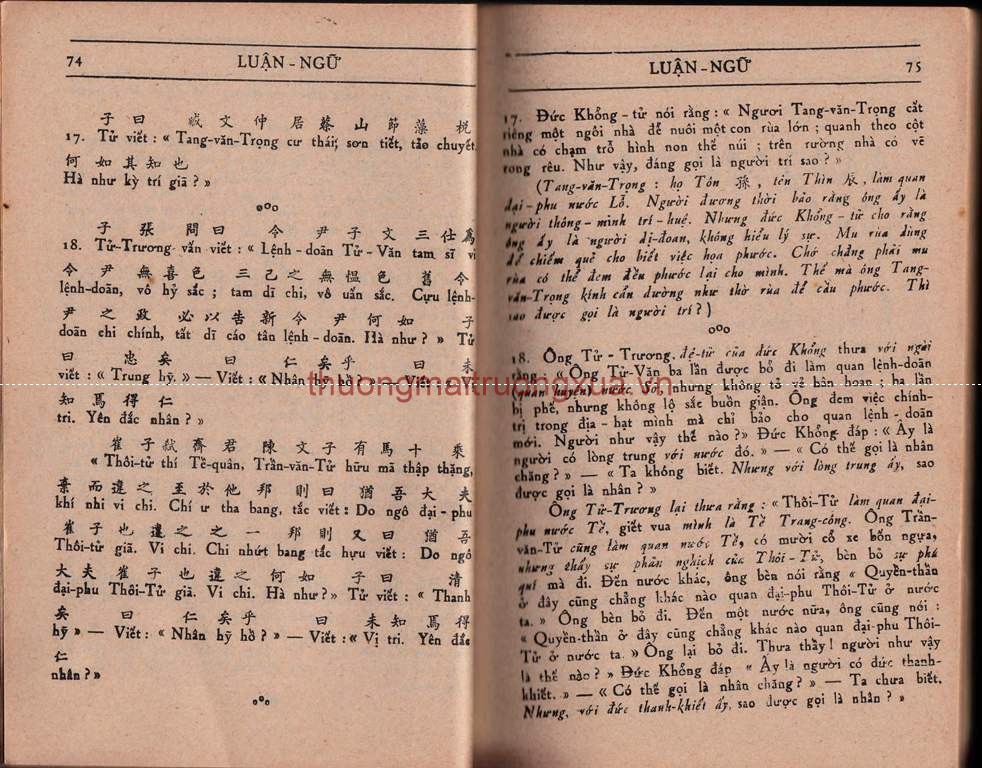 74
LUẬN-NGỮ
子曰 臧文仲居蔡山節藻梲
17. Tử viết : « Tang-văn-Trọng cư thái, sơn tiết, tảo chuyết.
何如其知也
Hà như kỳ trí giã ? »
子張問曰 令尹子文三仕爲
18. Tử-Trương vấn viết : « Lệnh-doãn Tử-Văn tam sĩ vi
令尹 無喜色 三己之無慍色 舊令
lệnh-doãn, vô hỷ sắc ; tam dĩ chi, vô uẩn sắc. Cựu lệnh-
尹之政 必以告新令尹何如 子
doãn chi chính, tất dĩ cáo tân lệnh-doãn. Hà như ? » Tử
曰 忠矣 曰 仁矣乎 曰 未
viết : « Trung hỹ. » — Viết : « Nhân hỹ hồ ? » — Viết : « Vị
知焉得仁
tri. Yên đắc nhân ? »
崔子弑齊君 陳文子有馬十乘
« Thôi-tử thí Tề-quân, Trần-văn-Tử hữu mã thập thặng,
棄而違之 至於他邦 則曰 猶吾大夫
khí nhi vi chi. Chí ư tha bang, tắc viết : Do ngô đại-phu
崔子也 違之 之一邦 則又曰 猶吾
Thôi-tử giã. Vi chi. Chi nhứt bang tắc hựu viết : Do ngô
大夫崔子也違之何如 子曰 清
đại-phu Thôi-Tử giã. Vi chi. Hà như ? » Tử viết : « Thanh
矣 曰 仁矣乎 曰 未知焉得
hỹ » — Viết : « Nhân hỹ hồ ? » — Viết : « Vị tri. Yên đắc
仁
nhân ? »
LUẬN-NGỮ
75
17. Đức Khổng-tử nói rằng : « Ngươi Tang-văn-Trọng cất
riêng một ngôi nhà để nuôi một con rùa lớn ; quanh theo cột
nhà có chạm trỗ hình non thế núi ; trên rường nhà có vẽ
rong rêu. Như vậy, đáng gọi là người trí sao ? »
(Tang-văn-Trọng : họ Tôn 孫, tên Thìn 辰, làm quan
đại-phu nước Lỗ. Người đương thời bảo rằng ông ấy là
người thông-minh trí-huệ. Nhưng đức Khổng-tử cho rằng
ông ấy là người dị-đoan, không hiểu lý sự. Mu rùa dùng
để chiếm quẻ cho biết việc họa phước. Chớ chẳng phải mu
rùa có thể đem đều phước lại cho mình. Thế mà ông Tang-
văn-Trọng kính cẩn dường như thờ rùa để cầu phước. Thì
sao được gọi là người trí ?)
18. Ông Tử-Trương, đệ-tử của đức Khổng thưa với ngài
rằng : « Ông Tử-Văn ba lần được bổ đi làm quan lệnh-doãn
(quan huyện) nước Sở, nhưng không tỏ vẻ hân hoan ; ba lần
bị phế, nhưng không lộ sắc buồn giận. Ông đem việc chính-
trị trong địa-hạt mình mà chỉ bảo cho quan lệnh-doãn
mới. Người như vậy thế nào ? » Đức Khổng đáp : « Ấy là
người có lòng trung với nước đó. » — « Có thể gọi là nhân
chăng ? » — « Ta không biết. Nhưng với lòng trung ấy, sao
được gọi là nhân ? »
Ông Tử-Trương lại thưa rằng : « Thôi-Tử làm quan đại-
phu nước Tề, giết vua mình là Tề Trang-công. Ông Trần-
văn-Tử cũng làm quan nước Tề, có mười cỗ xe bốn ngựa,
nhưng thấy sự phản nghịch của Thôi-Tử, bèn bỏ sự phú
quí mà đi. Đến nước khác, ông bèn nói rằng « Quyền-thần
ở đây cũng chẳng khác nào quan đại-phu Thôi-Tử ở nước
ta. » Ông bèn bỏ đi. Đến một nước nữa, ông cũng nói :
« Quyền-thần ở đây cũng chẳng khác nào quan đại-phu Thôi-
Tử ở nước ta. » Ông lại bỏ đi. Thưa thầy ! người như vậy
là thế nào ? » Đức Khổng đáp « Ấy là người có đức thanh-
khiết. » — « Có thể gọi là nhân chăng ? » — Ta chưa biết.
Nhưng, với đức thanh-khiết ấy, sao được gọi là nhân ? »
thuongmaitruongxua.vn